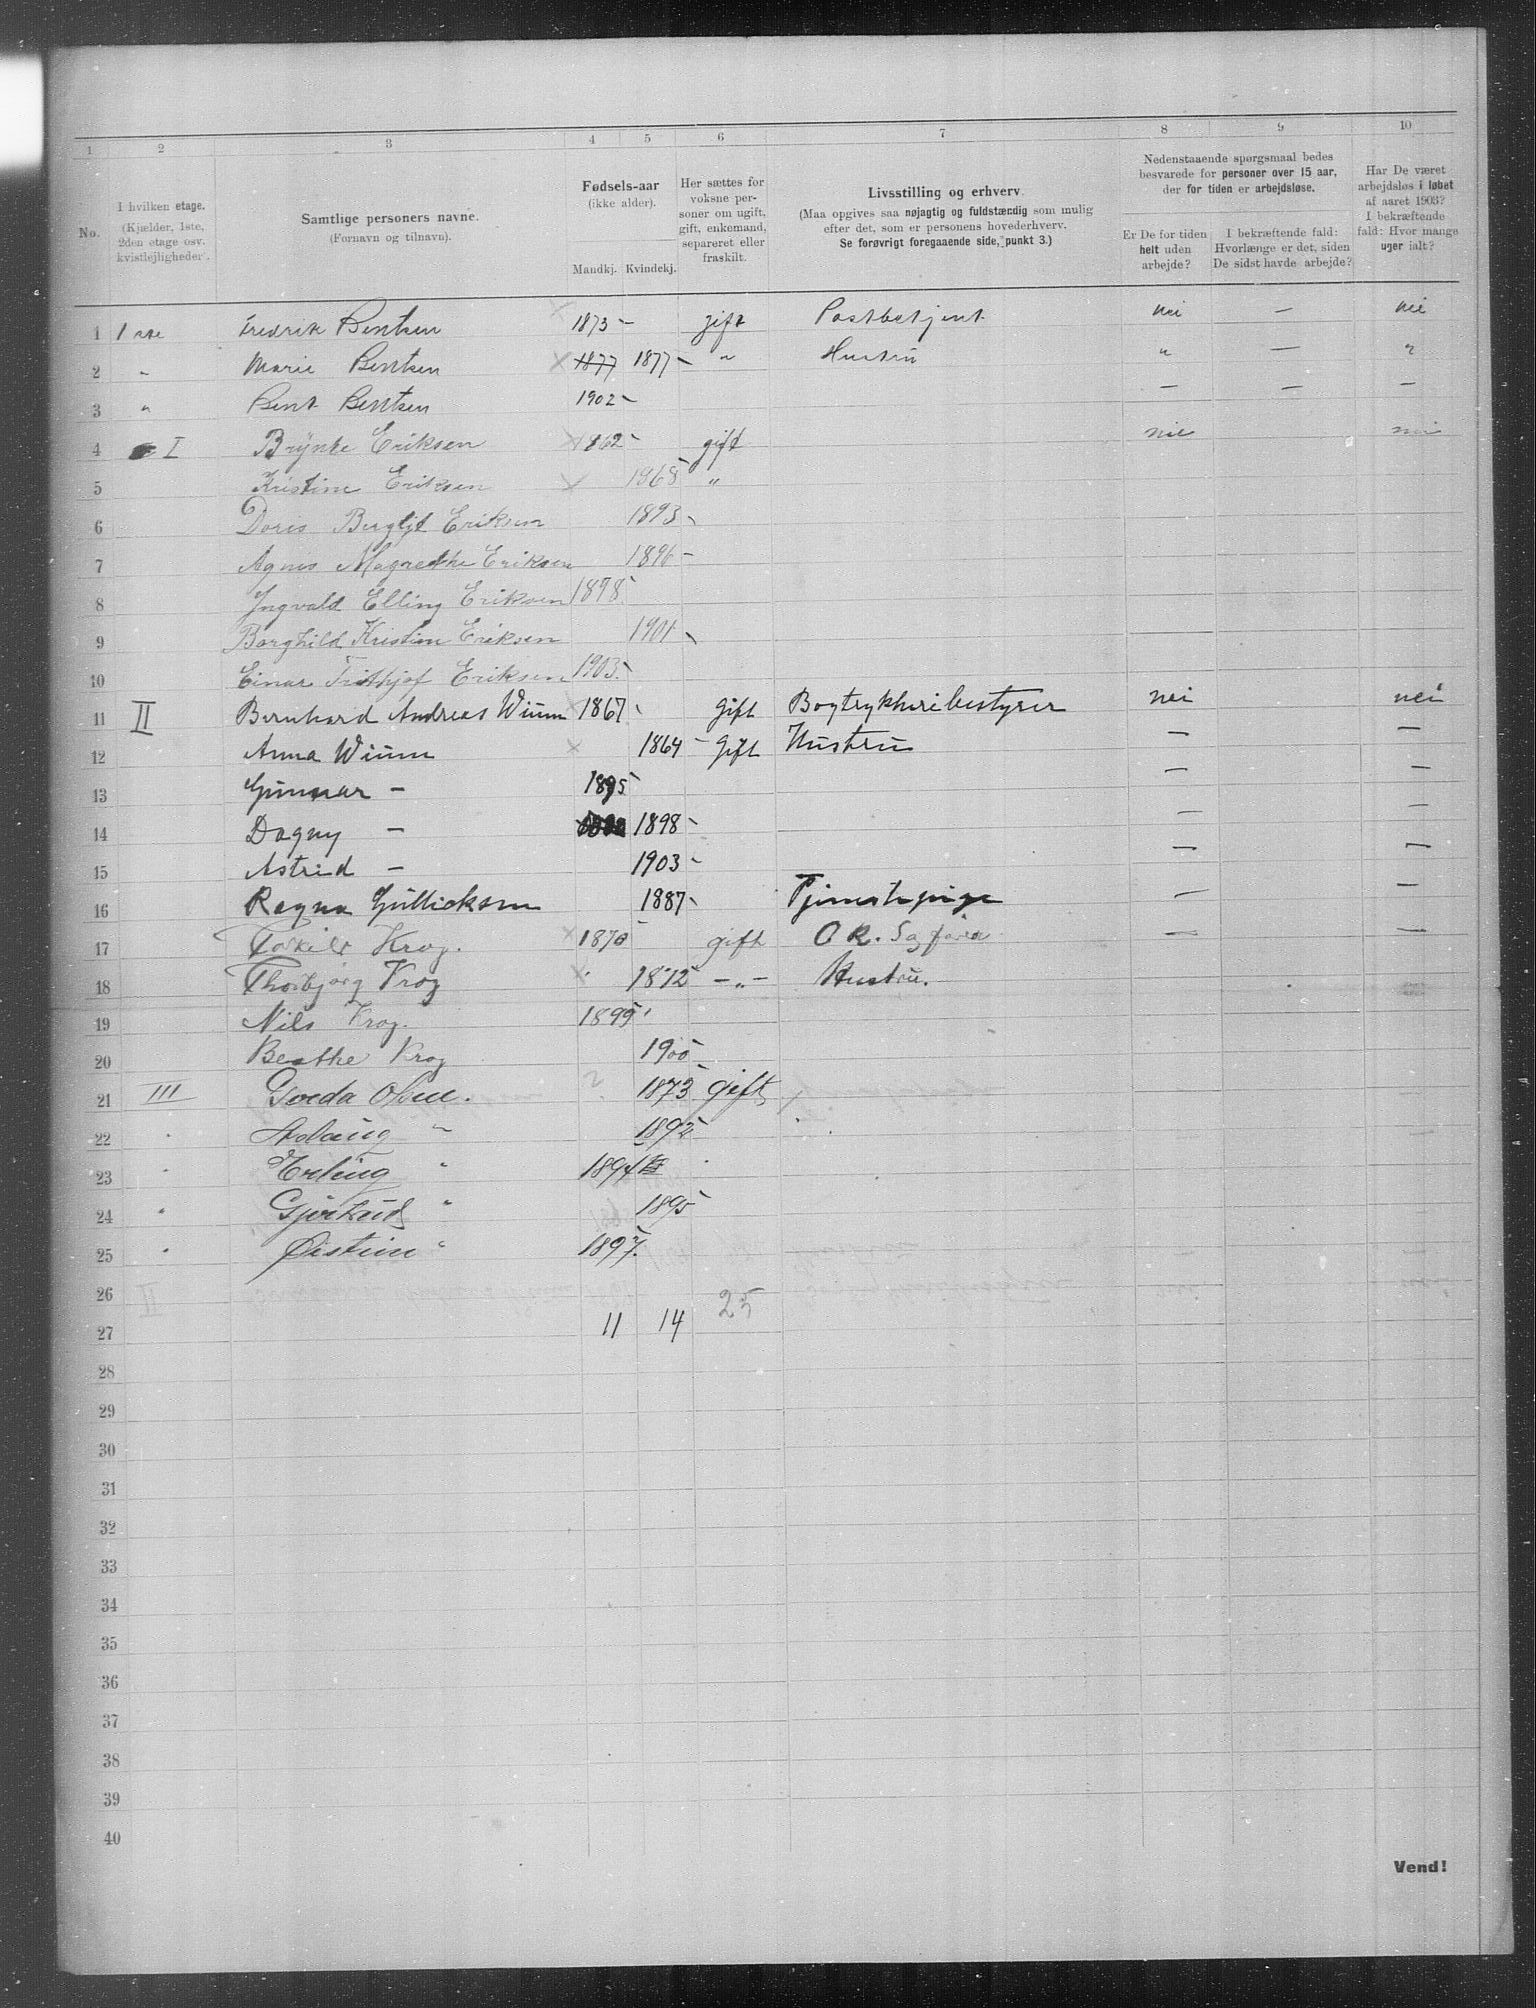 1 2 3 4 5 6 7 8 9 10
No.
I hvilken etage. (Kjælder, 1ste, 2den etage osv. kvistlejligheder).
Samtlige personers navne. (Fornavn og tilnavn).
Fødsels-aar (ikke alder).
Mandkj. Kvindekj.
Her sættes for voksne personer om ugift, gift, enkemand, separeret eller fraskilt.
Livsstilling og erhverv. (Maa opgives saa nøjagtig og fuldstændig som mulig efter det, som er personens hovederhverv. Se forøvrigt foregaaende side, punkt 3.)
Nedenstaaende spørgsmaal bedes besvarede for personer over 15 aar, der for tiden er arbejdsløse.
Er De for tiden helt uden arbejde?
I bekræftende fald: Hvorlænge er det, siden De sidst havde arbejde?
Har De været arbejdsløs i løbet af aaret 1903? I bekræftende fald: Hvor mange uger ialt?
1 1 ste Fredrik Bentsen × 1873 – gift Postbetjent nei — nei
2 " Marie Bentsen × 1877 1877 – " Hustru " — "
3 " Bent Bentsen 1902 – — — —
4 I Brynte Eriksen × 1862 – gift nei nei
5 Kristine Eriksen × 1968 "
6 Doris Bergljt Eriksen 1893 –
7 Agnes Magrethe Eriksen 1896 –
8 Ingvald Elling Eriksen 1898
9 Borghild Kristine Eriksen 1901 –
10 Einar Frithjof Eriksen 1903
11 II Bernhard Andreas Wium 1867 – Gift Bogtrykkeribestyrer nei nei
12 Anna Wium × 1864 – Gift Hustru — —
13 Gunnar – 1895 — —
14 Dagny – 1898 – — —
15 Astrid – 1903 – — —
16 Ragna Gulliksen 1887 – Tjenestepige — —
17 Torkild Krog. × 1870 gift O R. Sagfører — —
18 Thorbjørg Krog × 1872 – " – Hustru.
19 Nils Krog. 1899
20 Beathe Krog 1900
21 III Gerda Olsen. ? 1873 gift
22 " Aslaug " 1892
23 " Erling " 1894
24 " Gjertrud " 1895
25 " Øistein " 1897.
26 25
27 11 14
28
29
30
31
32
33
34
35
36
37
38
39
40
Vend!